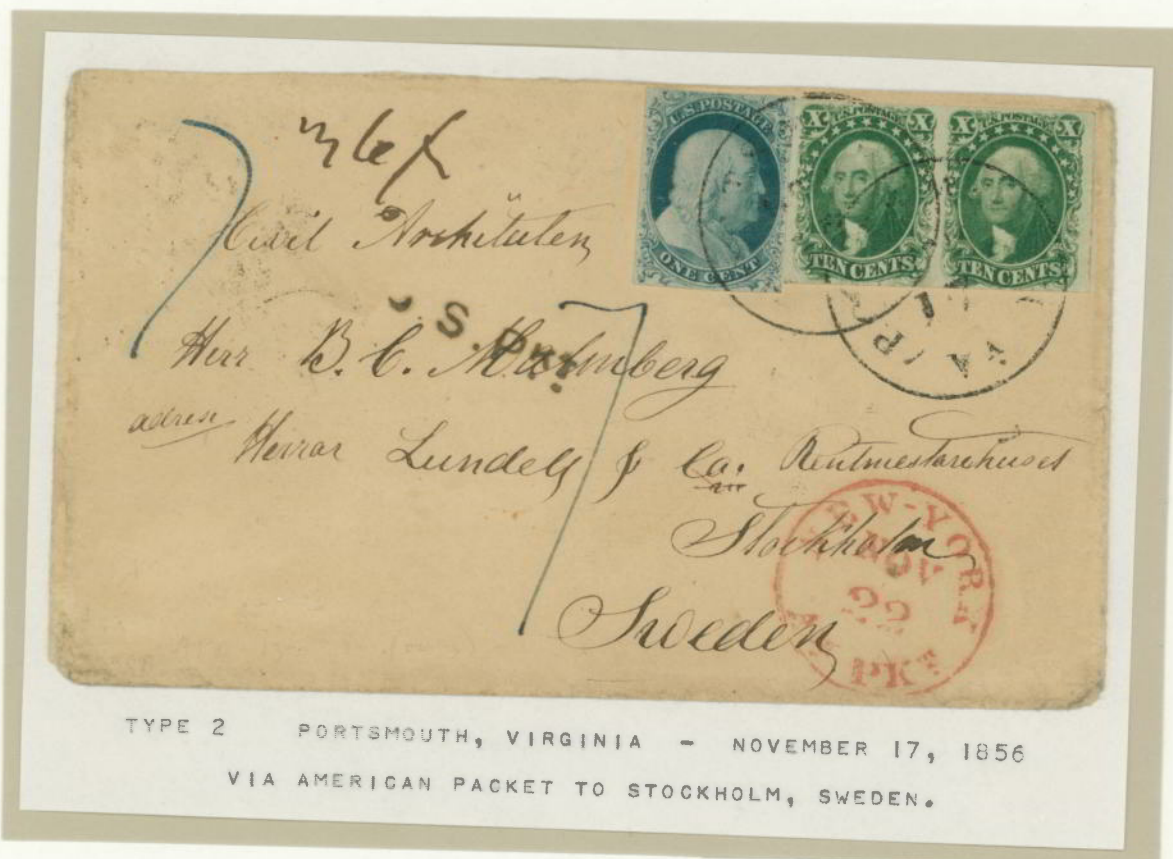 U.S. POSTAGE
ONE CENT
X U.S. POSTAGE X
TEN CENTS
X U.S. POSTAGE X
TEN CENTS
17
VA
7
Civil Arkitekten
S. PKT.
7
Herr B. C. Malmberg
adress
Herrar Lundell & Co. Rentmestarehuset
Stockholm
Sweden
NEW-YORK
NOV
22
PKT
TYPE 2 PORTSMOUTH, VIRGINIA - NOVEMBER 17, 1856
VIA AMERICAN PACKET TO STOCKHOLM, SWEDEN.